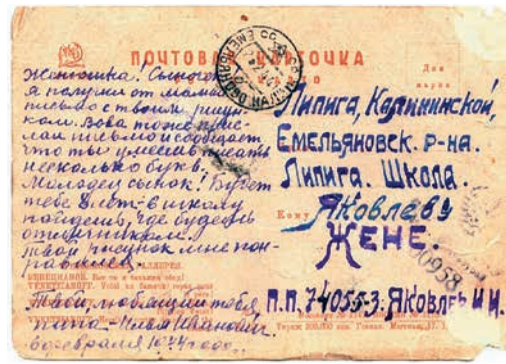 ПОЧТОВАЯ КАРТОЧКА
Для
марки
Женюшка! Сыночек
я получил от мамы
письмо с твоим рисун-
ком. Вова тоже прис-
лал письмо и сообщает
что ты умеешь писать
несколько букв.
Молодец сынок! Будет
тебе 8 лет - в школу
пойдешь, где будешь
отличником.
Твой рисунок мне пон-
равился.
Твой любящий тебя
папа - Илья Иванович
6 февраля 1944 года.
Липига, Калининской,
Емельяновск. р-на.
Липига. Школа.
Кому Яковлеву
ЖЕНЕ.
00958
П.П. 74055-З. ЯКОВЛЕВ И.И.
ЕМЕЛЬЯНОВО КАЛИН